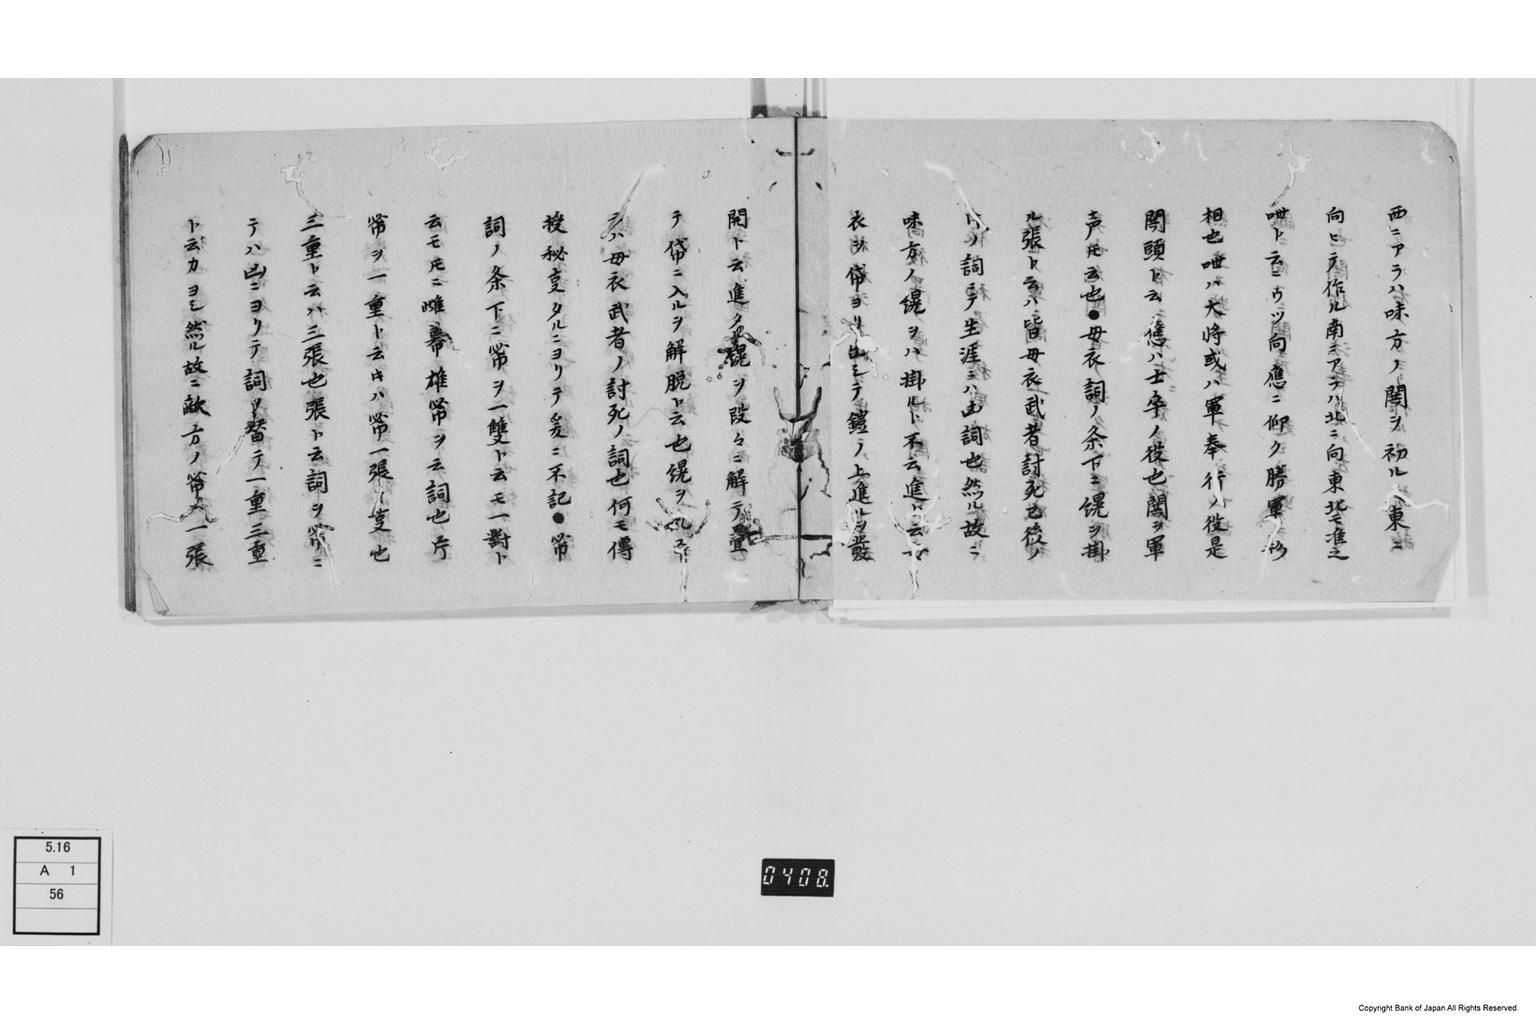 西ニアラハ味方ノ鬨ヲ初ル東ニ
向ヒテ作ル南ニアラハ北ニ向東北モ准之
呭ト云ニウツ向應ニ仰ク勝軍ノ
相也呭ハ大将或ハ軍奉行ノ役是
鬨頭ト云應ハ士卒ノ役也鬨ヲ軍
声氏云也●毋衣詞ノ条下ニ縨ヲ掛
ル張ト云ハ皆毋衣武者討死已後ノ
ノ詞ニテ生涯ニハ凶詞也然ル故ニ
味方ノ縨ヲハ掛ルト不云進ト云
衣ヲ帒ヨリ出シテ鎧ノ上進ルヲ發
開ト云進タル縨ヲ段々ニ解テ畳
テ帒ニ入ルヲ解脱ト云也縨ヲ
ハ毋衣武者ノ討死ノ詞也何モ傳
授秘支タルニヨリテ爰ニ不記●幕
詞ノ条下ニ幕ヲ一雙ト云モ一對ト
云モ氏ニ雌幕雄幕ヲ云詞也片
幕ヲ一重ト云キハ幕一張ノ支也
三重ト云ハ三張也張ト云詞ヲ幕ニ
テハ凶ニヨリテ詞ヲ替テ一重三重
ト云カヨシ然ル故ニ敵方ノ幕ヲ一張
5.16
A 1
56
0408.
Copyright Bank of Japan All Rights Reserved.